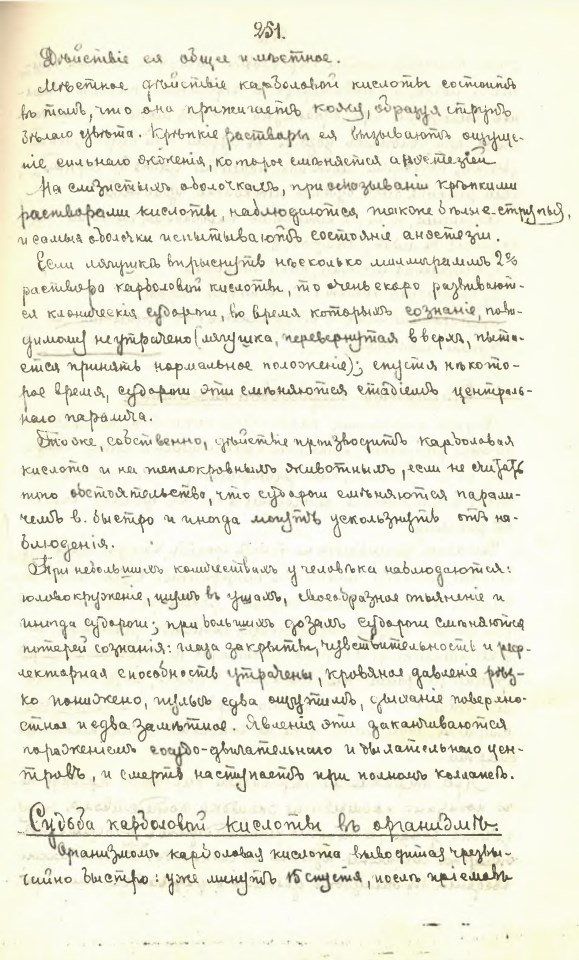 251.
Дѣйствіе ея общее и мѣстное.
Мѣстное дѣйствіе карболовой кислоты состоитъ
въ томъ, что она прижигаетъ кожу, образуя струпъ
бѣлаго цвѣта. Крѣпкіе растворы ея вызываютъ ощуще-
ніе сильнаго жженія, которое смѣняется анэстезіей
На слизистыхъ оболочкахъ, при смазываніи крѣпкими
растворами кислоты, наблюдаются также бѣлые струпья,
и самыя оболочки испытываютъ состояніе анэстезіи.
Если лягушкѣ впрыснуть нѣсколько миллиграммъ 2%
раствора карболовой кислоты, то очень скоро развивают-
ся клоническія судороги, во время которыхъ сознаніе, пови-
димому не утрачено (лягушка, перевернутая вверхъ, пыта-
ется принять нормальное положеніе); спустя нѣкото-
рое время, судороги эти смѣняются стадіемъ централь-
наго паралича.
То же, собственно, дѣйствіе производитъ карболовая
кислота и на теплокровныхъ животныхъ, если не считать
того обстоятельства, что судороги смѣняются парали-
чемъ в. быстро и иногда могутъ ускользнуть отъ на-
блюденія.
При небольшихъ количествахъ у человѣка наблюдаются:
головокруженіе, шумъ въ ушахъ, своеобразное опьяненіе и
иногда судороги; при большихъ дозахъ судороги смѣняются
потерей сознанія: глаза закрыты, чувствительность и реф-
лекторная способность утрачены, кровяное давленіе рѣз-
ко понижено, пульсъ едва ощутимъ, дыханіе поверхно-
стное и едва замѣтное. Явленія эти заканчиваются
пораженіемъ сосудо-двигательнаго и дыхательнаго цен-
тровъ, и смерть наступаетъ при полномъ коллапсѣ.
Судьба карболовой кислоты въ организмѣ.
Организмомъ карболовая кислота выводится чрезвы-
чайно быстро: уже минутъ 15 спустя, послѣ пріемовъ